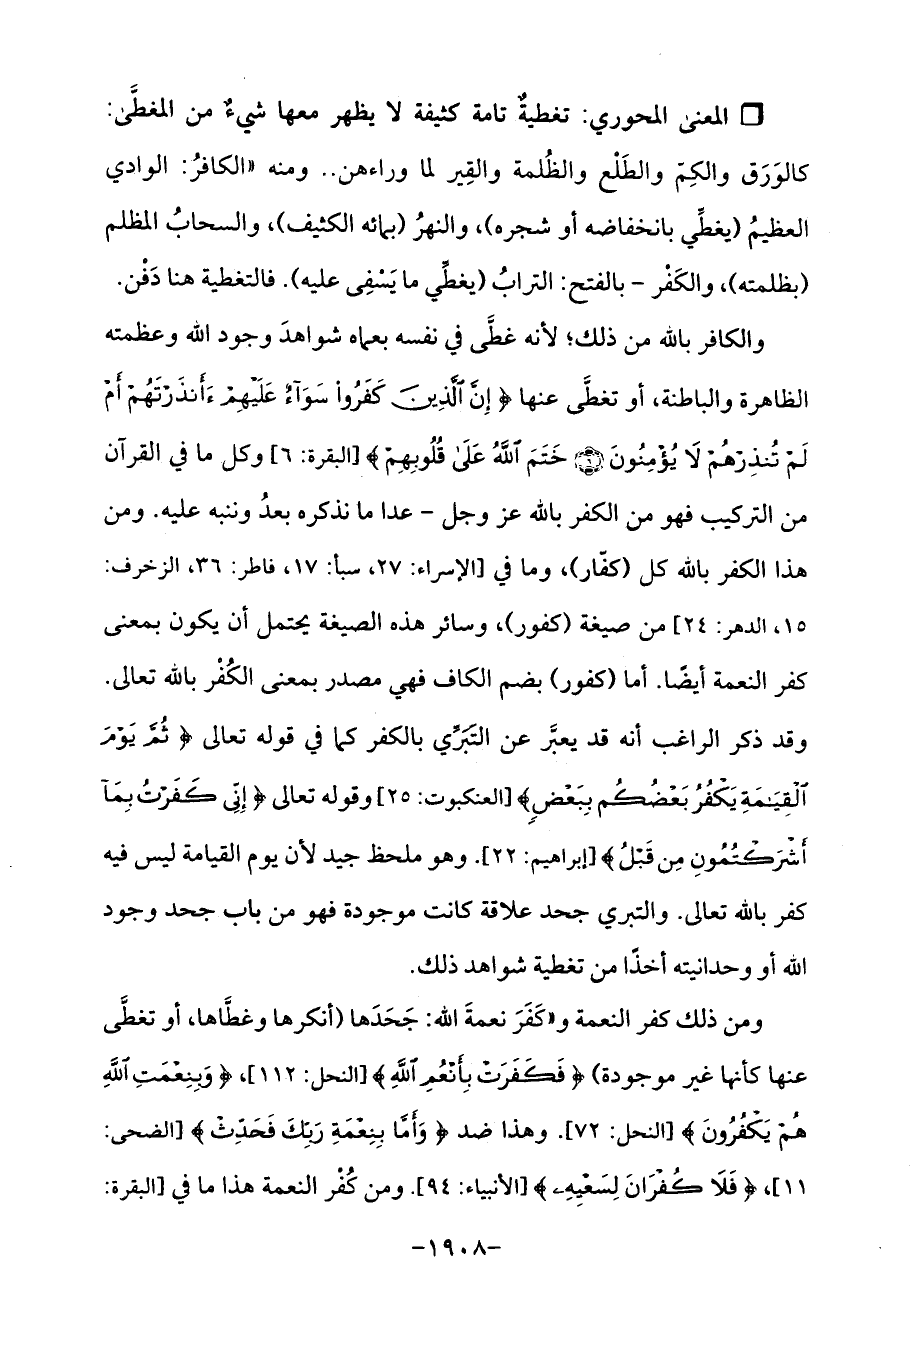 ❏ المعنى المحوري: تغطيةٌ تامة كثيفة لا يظهر معها شيءٌ من المغطَّى:
كالوَرَق والكِمّ والطَلْع والظُلمة والقِير لما وراءهن.. ومنه «الكافرُ: الوادي
العظيمُ (يغطِّي بانخفاضه أو شجره)، والنهرُ (بمائه الكثيف)، والسحابُ المظلم
(بظلمته)، والكَفْر – بالفتح: الترابُ (يغطِّي ما يَسْفِى عليه). فالتغطية هنا دَفْن.
والكافر بالله من ذلك؛ لأنه غطَّى في نفسه بعماه شواهدَ وجود الله وعظمته
الظاهرة والباطنة، أو تغطَّى عنها ﴿ إِنَّ ٱلَّذِينَ كَفَرُوا۟ سَوَآءٌ عَلَيْهِمْ ءَأَنذَرْتَهُمْ أَمْ
لَمْ تُنذِرْهُمْ لَا يُؤْمِنُونَ ۝٦ خَتَمَ ٱللَّهُ عَلَىٰ قُلُوبِهِمْ ﴾ [البقرة: ٦] وكل ما في القرآن
من التركيب فهو من الكفر بالله عز وجل – عدا ما نذكره بعدُ وننبه عليه. ومن
هذا الكفر بالله كل (كفّار)، وما في [الإسراء: ٢٧، سبأ: ١٧، فاطر: ٣٦، الزخرف:
١٥، الدهر: ٢٤] من صيغة (كفور)، وسائر هذه الصيغة يحتمل أن يكون بمعنى
كفر النعمة أيضًا. أما (كفور) بضم الكاف فهي مصدر بمعنى الكُفْر بالله تعالى.
وقد ذكر الراغب أنه قد يعبَّر عن التَبَرِّي بالكفر كما في قوله تعالى ﴿ ثُمَّ يَوْمَ
ٱلْقِيَـٰمَةِ يَكْفُرُ بَعْضُكُم بِبَعْضٍ ﴾ [العنكبوت: ٢٥] وقوله تعالى ﴿ إِنِّى كَفَرْتُ بِمَآ
أَشْرَكْتُمُونِ مِن قَبْلُ ﴾ [إبراهيم: ٢٢]. وهو ملحظ جيد لأن يوم القيامة ليس فيه
كفر بالله تعالى. والتبري جحد علاقة كانت موجودة فهو من باب جحد وجود
الله أو وحدانيته أخذًا من تغطية شواهد ذلك.
ومن ذلك كفر النعمة و«كَفَرَ نعمةَ الله: جَحَدَها (أنكرها وغطَّاها، أو تغطَّى
عنها كأنها غير موجودة) ﴿ فَكَفَرَتْ بِأَنْعُمِ ٱللَّهِ ﴾ [النحل: ١١٢]، ﴿ وَبِنِعْمَتِ ٱللَّهِ
هُمْ يَكْفُرُونَ ﴾ [النحل: ٧٢]. وهذا ضد ﴿ وَأَمَّا بِنِعْمَةِ رَبِّكَ فَحَدِّثْ ﴾ [الضحى:
١١]، ﴿ فَلَا كُفْرَانَ لِسَعْيِهِۦ ﴾ [الأنبياء: ٩٤]. ومن كُفْر النعمة هذا ما في [البقرة:
-١٩٠٨-